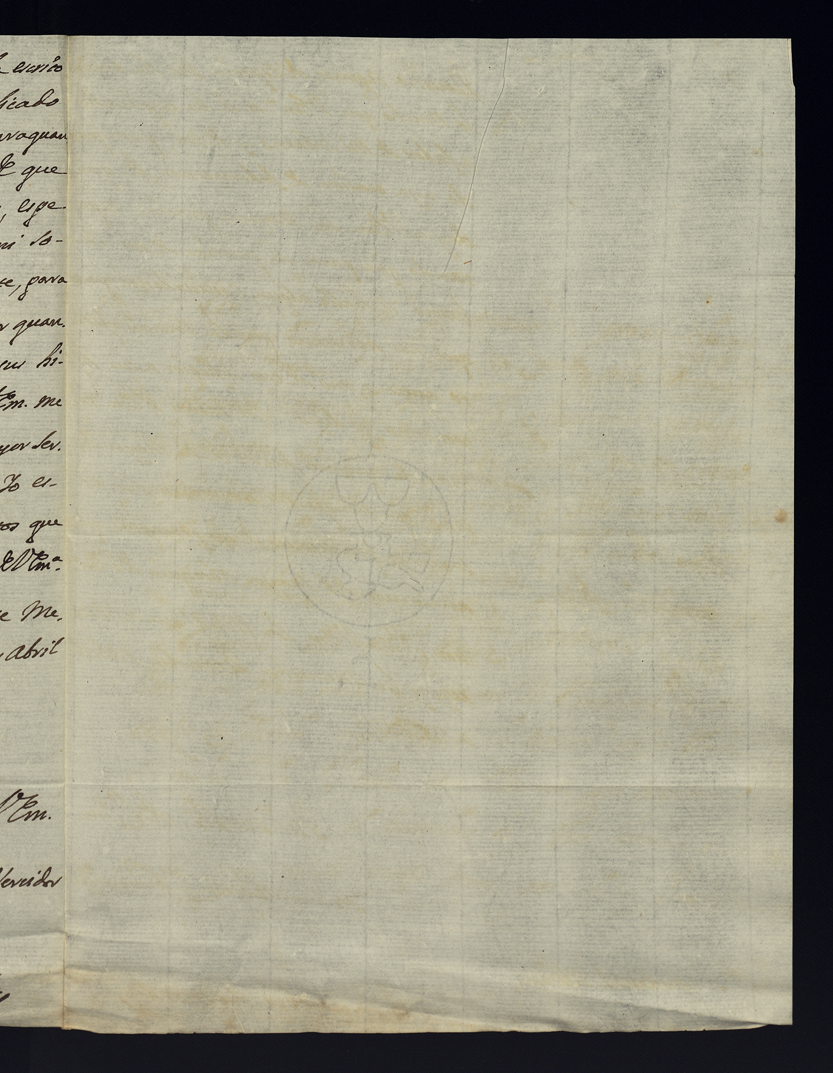 escrito
licado
que
espe-
mi so-
te, para
r quan-
su hi-
Em. me
yor Ser.
Yo es-
tos que
de V Emª.
e Me,
Abril
V Em.
Servidor